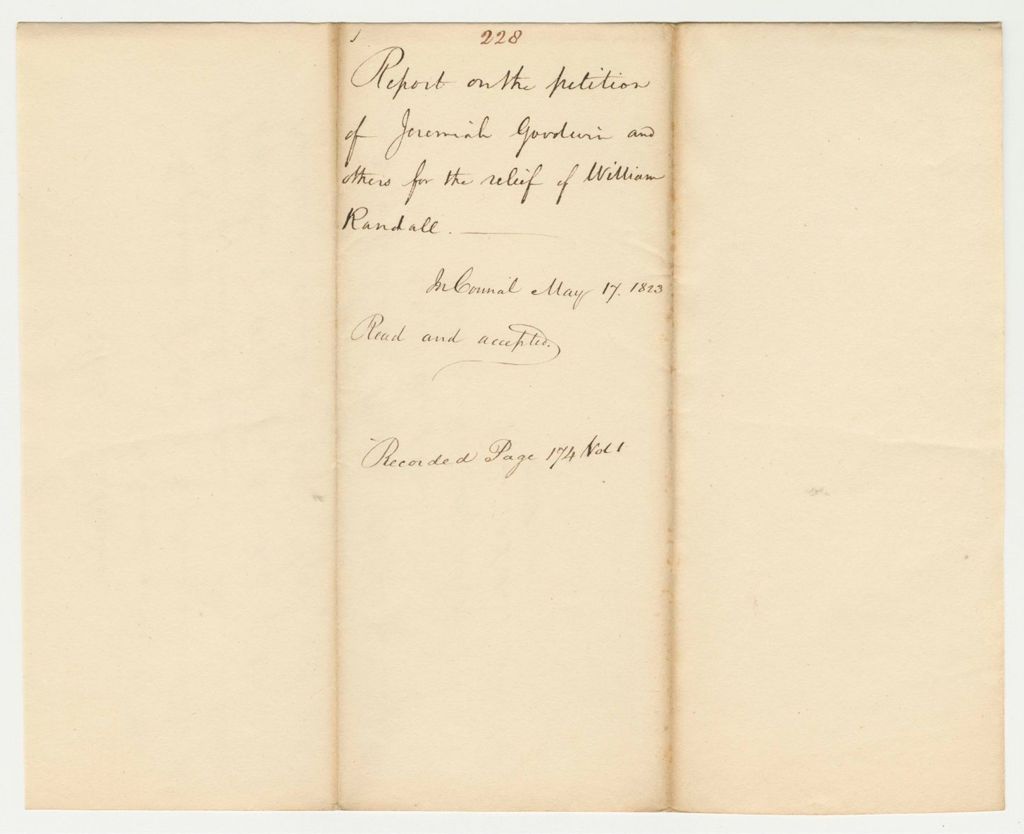 228
Report on the petition
of Jeremiah Goodwin and
others for the relief of William
Randall.
In Council May 17. 1823
Read and accepted.
Recorded Page 174 Vol 1